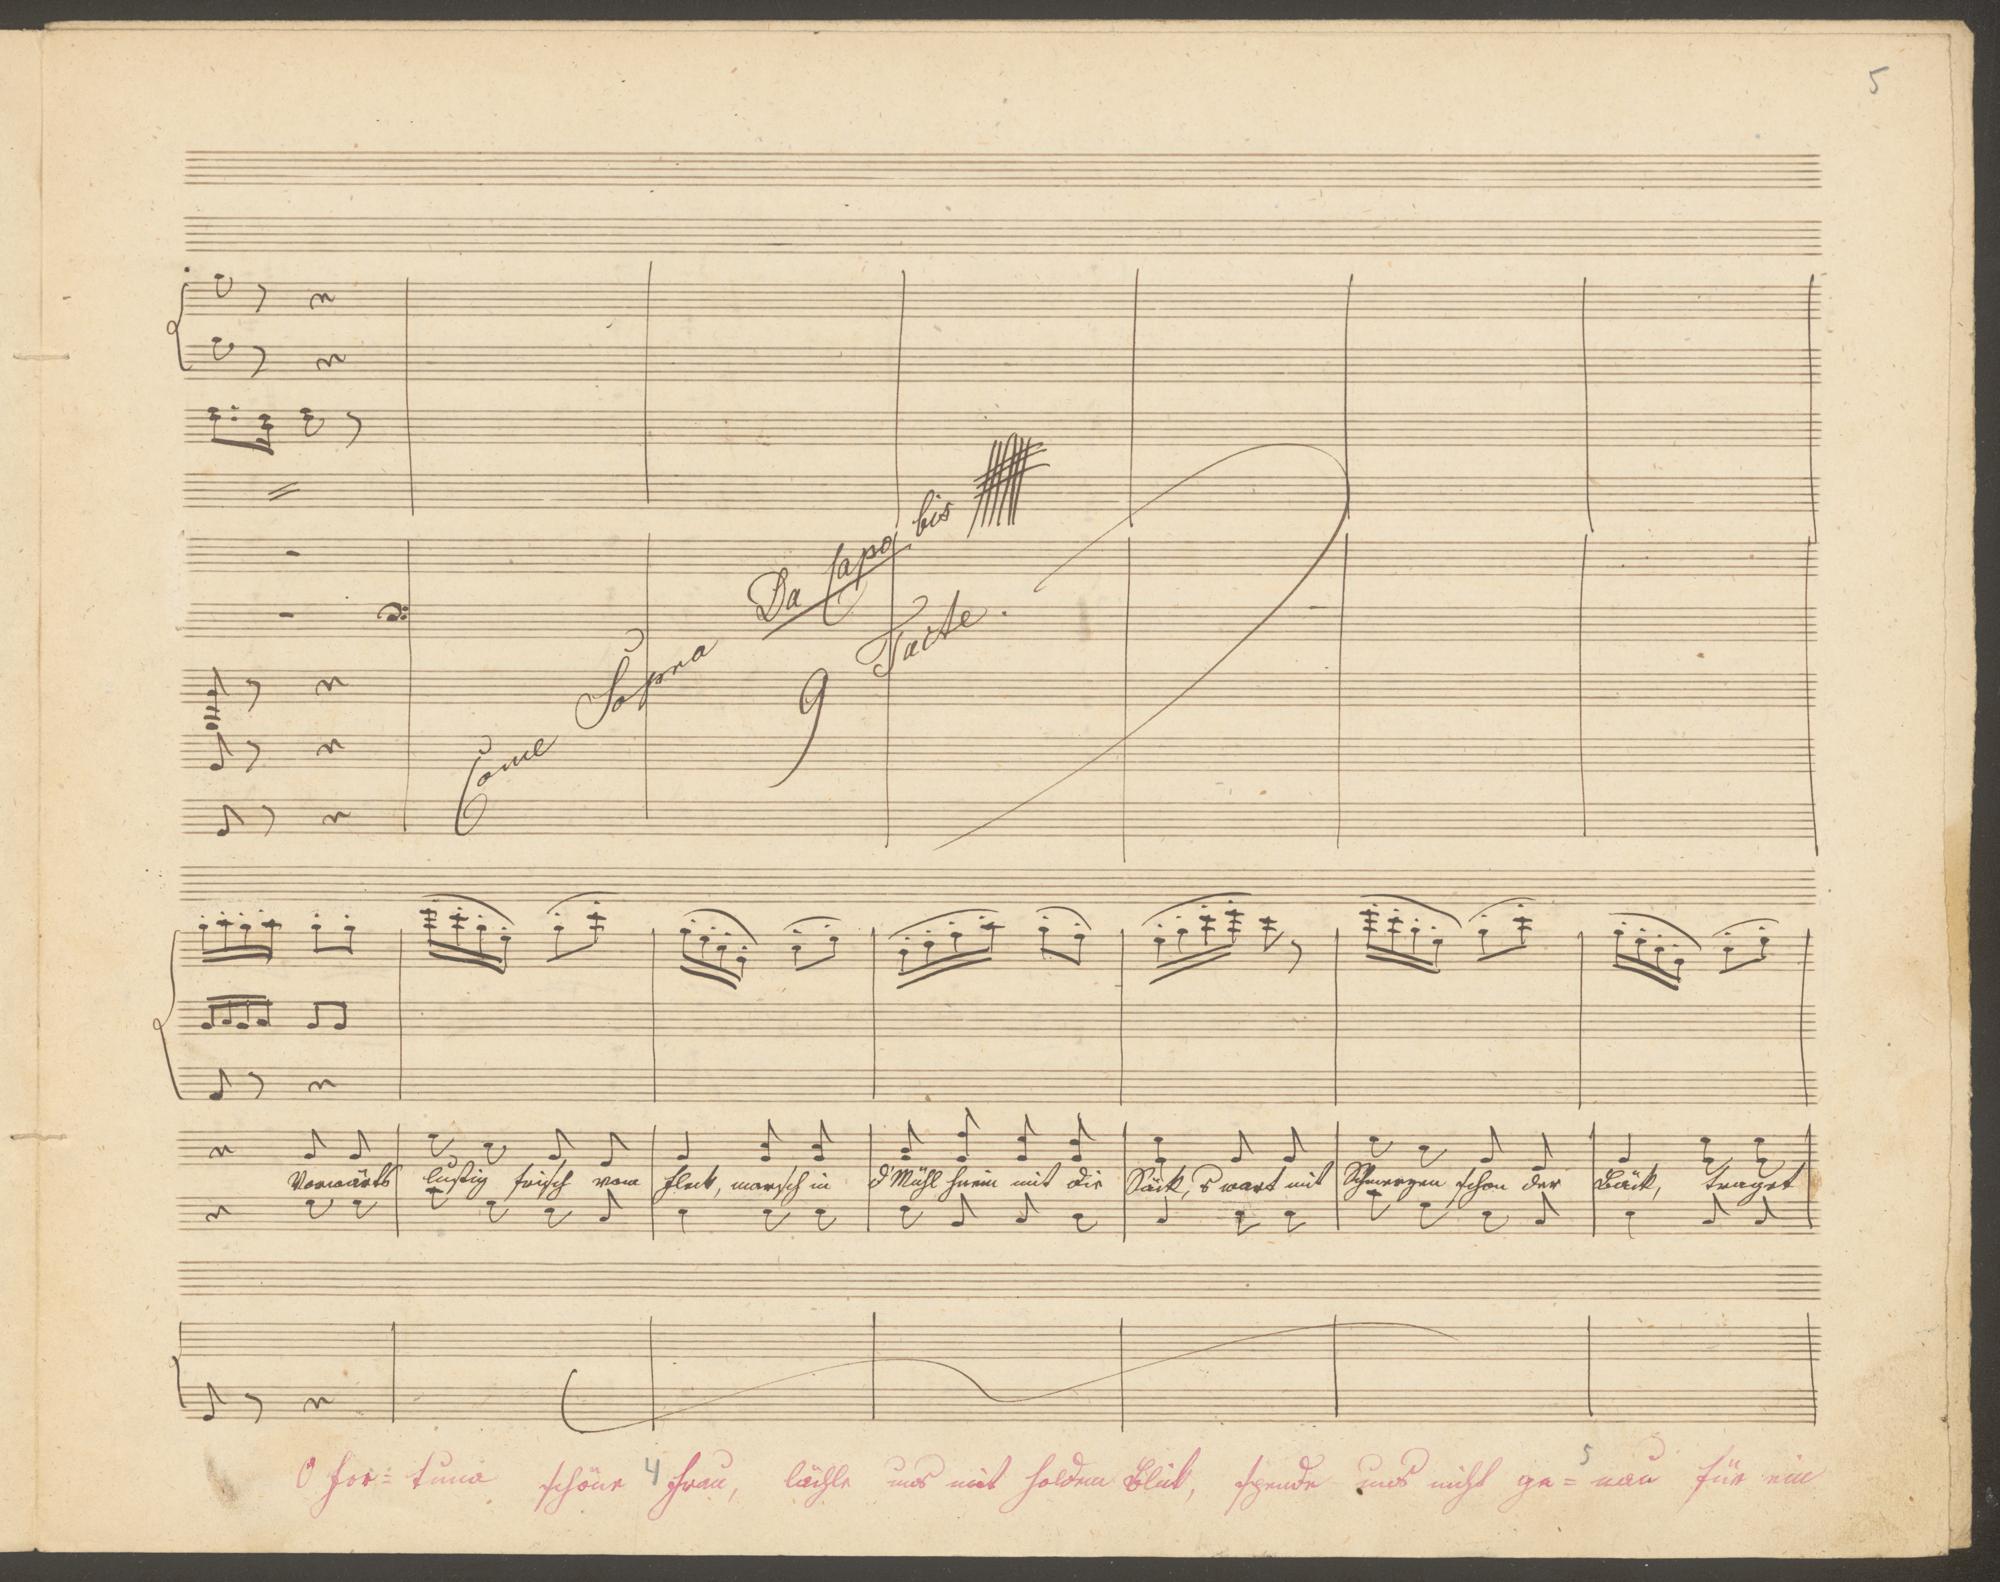 5
Come Sopra Da Capo bis
9 Tacte.
Vorwärts lustig frisch vom Fleck, marsch in d'Mühl hnein mit die Säck, 's wart mit Schmerzen schon der Bäck, traget
O For= tuna schöne Frau, lächle uns mit holdem Blick, spende uns nicht ge= nau für ein
4
5